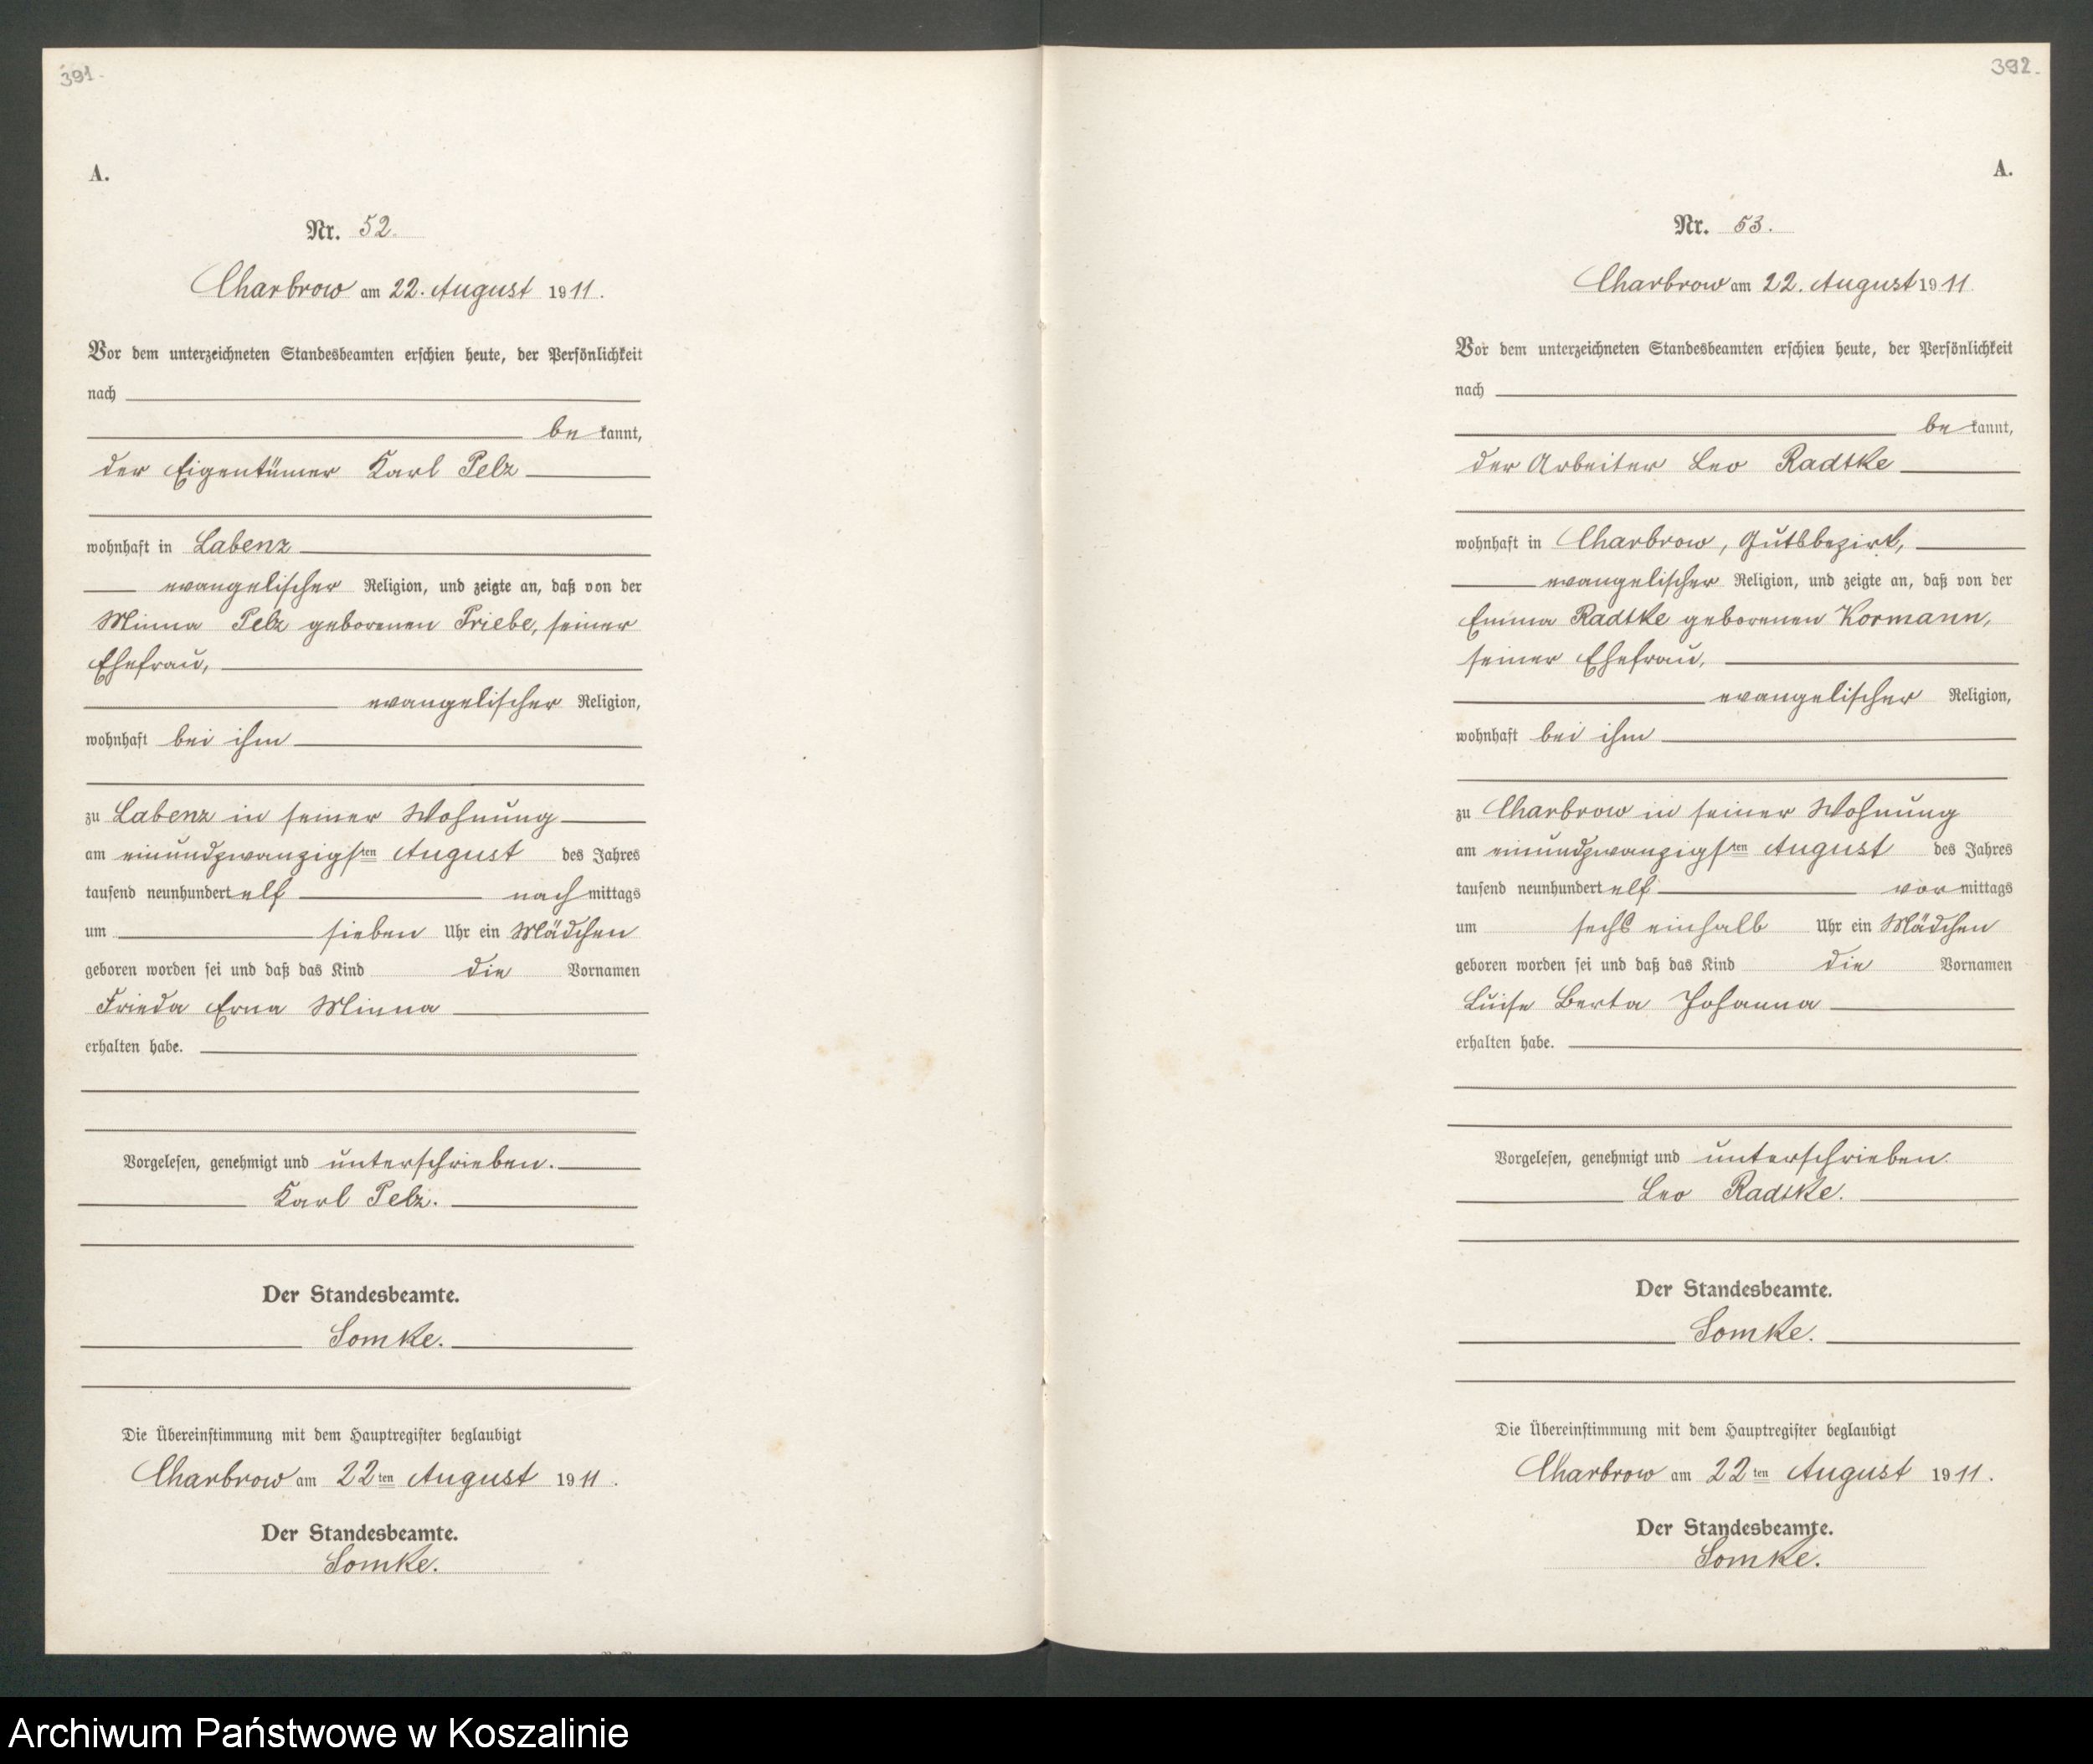 391.
A.
Nr. 52.
Charbrow am 22. August 1911.
Vor dem unterzeichneten Standesbeamten erschien heute, der Persönlichkeit
nach
be kannt,
der Eigentümer Karl Pelz
wohnhaft in Labenz
evangelischer Religion, und zeigte an, daß von der
Minna Pelz geborenen Friebe, seiner
Ehefrau,
evangelischer Religion,
wohnhaft bei ihm
zu Labenz in seiner Wohnung
am einundzwanzigsten August des Jahres
tausend neunhundert elf nach mittags
um sieben Uhr ein Mädchen
geboren worden sei und daß das Kind die Vornamen
Frieda Erna Minna
erhalten habe.
Vorgelesen, genehmigt und unterschrieben.
Karl Pelz.
Der Standesbeamte.
Somke.
Die Übereinstimmung mit dem Hauptregister beglaubigt
Charbrow am 22ten August 1911.
Der Standesbeamte.
Somke.
392.
A.
Nr. 53.
Charbrow am 22. August 1911
Vor dem unterzeichneten Standesbeamten erschien heute, der Persönlichkeit
nach
be kannt,
der Arbeiter Leo Radtke
wohnhaft in Charbrow, Gutsbezirk,
evangelischer Religion, und zeigte an, daß von der
Emma Radtke geborenen Kormann,
seiner Ehefrau,
evangelischer Religion,
wohnhaft bei ihm
zu Charbrow in seiner Wohnung
am einundzwanzigsten August des Jahres
tausend neunhundert elf vor mittags
um sechs einhalb Uhr ein Mädchen
geboren worden sei und daß das Kind die Vornamen
Luise Berta Johanna
erhalten habe.
Vorgelesen, genehmigt und unterschrieben.
Leo Radtke.
Der Standesbeamte.
Somke.
Die Übereinstimmung mit dem Hauptregister beglaubigt
Charbrow am 22ten August 1911.
Der Standesbeamte.
Somke.
Archiwum Państwowe w Koszalinie